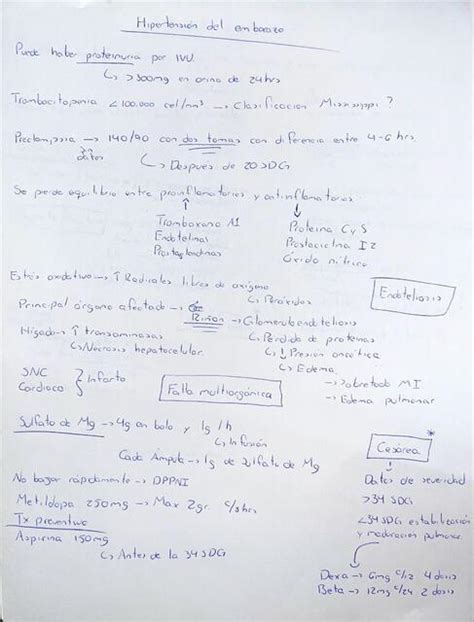 Hipertensión del embarazo
Puede haber proteinuria por IVU
↳ >300mg en orina de 24hrs
Trombocitopenia <100.000 cel/mm³ → Clasificacion Mississippi ?
Preclampsia → 140/90 con dos tomas con diferencia entre 4-6 hrs
↳ Después de 20 SDG
Se pierde equilibrio entre proinflamatorios y antiinflamatorios
Tromboxano A1
Endotelinas
Prostaglandinas
Proteina C y S
Prostaciclina I2
Óxido nítrico
Estrés oxidativo → ↑ Radicales libres de oxígeno
↳ Peróxidos
Endoteliosis
Principal órgano afectado → Riñon → Glomeruloendoteliosis
↳ Perdida de proteinas
↳ ↓ Presion oncótica
↳ Edema
→ Sobretodo MI
→ Edema pulmonar
Higado → ↑ transaminasas
↳ Necrosis hepatocelular
SNC
Cardiaco } Infarto
Falla multiorgánica
Sulfato de Mg → 4g en bolo y 1g/h
↳ Infusión
Cada Ámpula → 1g de Sulfato de Mg
No bajar rápidamente → DPPNI
Metildopa 250mg → Max 2gr c/8hrs
Tx preventivo
Aspirina 150mg
↳ Antes de la 34 SDG
*
Cesárea
Datos de severidad
>34 SDG
<34 SDG estabilización
y maduracion pulmonar
Dexa → 6mg c/12 4 dosis
Beta → 12mg c/24 2 dosis